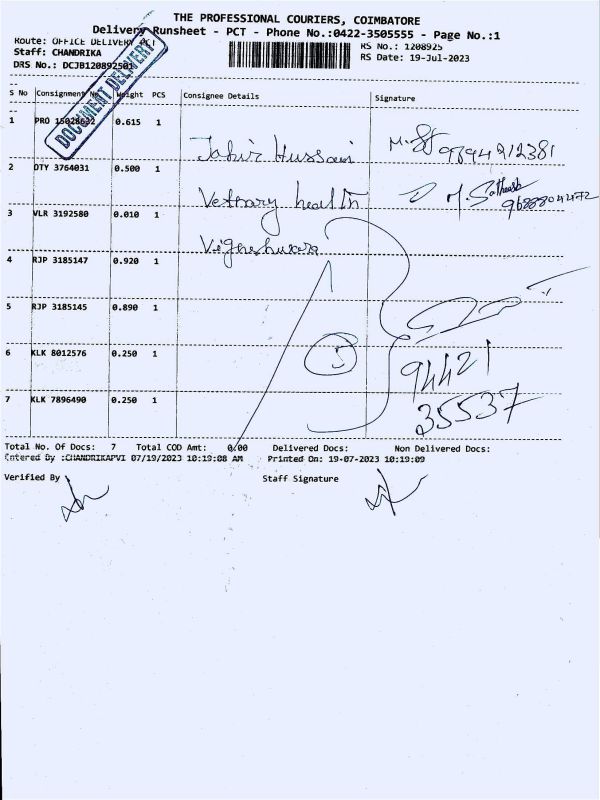 THE PROFESSIONAL COURIERS, COIMBATORE
Delivery Runsheet - PCT - Phone No.:0422-3505555 - Page No.:1
Route: OFFICE DELIVERY PCT
RS No.: 1208925
Staff: CHANDRIKA
RS Date: 19-Jul-2023
DRS No.: DCJB120892501
DOCUMENT DELIVERY
S No Consignment No Weight PCS Consignee Details Signature
1 PRO 0.615 1
Hussain 9894912381
2 DTY 3764031 0.500 1
health
3 VLR 3192580 0.010 1
Vigneshwara
4 RJP 3185147 0.920 1
5 RJP 3185145 0.890 1
6 KLK 8012576 0.250 1
5 94421
7 KLK 7896490 0.250 1
35537
Total No. Of Docs: 7 Total COD Amt: 0.00 Delivered Docs: Non Delivered Docs:
Entered By :CHANDRIKAPVI 07/19/2023 10:19:08 AM Printed On: 19-07-2023 10:19:09
Verified By Staff Signature